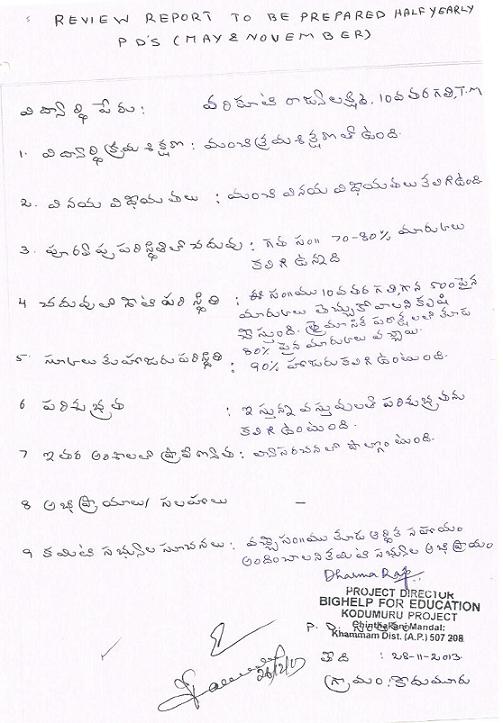 REVIEW REPORT TO BE PREPARED HALF YEARLY
P D'S (MAY & NOVEMBER)
విద్యార్థి పేరు : రాజ్యలక్ష్మి, 10వ తరగతి, T.M
1. విద్యార్థి క్రమశిక్షణ : మంచి క్రమశిక్షణతో ఉంది.
2. వినయ విధేయతలు : మంచి వినయ విధేయతలు కలిగి ఉంది
3. పూర్వపు పరిస్థితిలో చదువు : గత సం॥ 70-80% మార్కులు
కలిగి ఉన్నది
4 చదువులో పరిస్థితి : ఈ సం॥ము 10వ తరగతి పైన
మార్కులు తెచ్చుకోవాలని కృషి
చేస్తుంది. త్రైమాసిక పరీక్షలలో కూడ
80% పైన మార్కులు వచ్చాయి.
5. స్కూలుకు హాజరు పరిస్థితి : 90% హాజరు కలిగి ఉంటుంది.
6 పరిశుభ్రత : ఇస్తున్న వస్తువులతో పరిశుభ్రతను
కలిగి ఉంటుంది.
7 ఇతర అంశాలలో ప్రావీణ్యత : పాల్గొంటుంది.
8 అభిప్రాయాలు/ సలహాలు –
9 కమిటి సభ్యుల సూచనలు : వచ్చే సం॥ము కూడ ఆర్థిక సహాయం
అందించాలని కమిటి సభ్యుల అభిప్రాయం
PROJECT DIRECTOR
BIGHELP FOR EDUCATION
KODUMURU PROJECT
Chinthakani Mandal:
Khammam Dist. (A.P.) 507 208
తేది : 28-11-2013
గ్రామం : కొదుమూరు